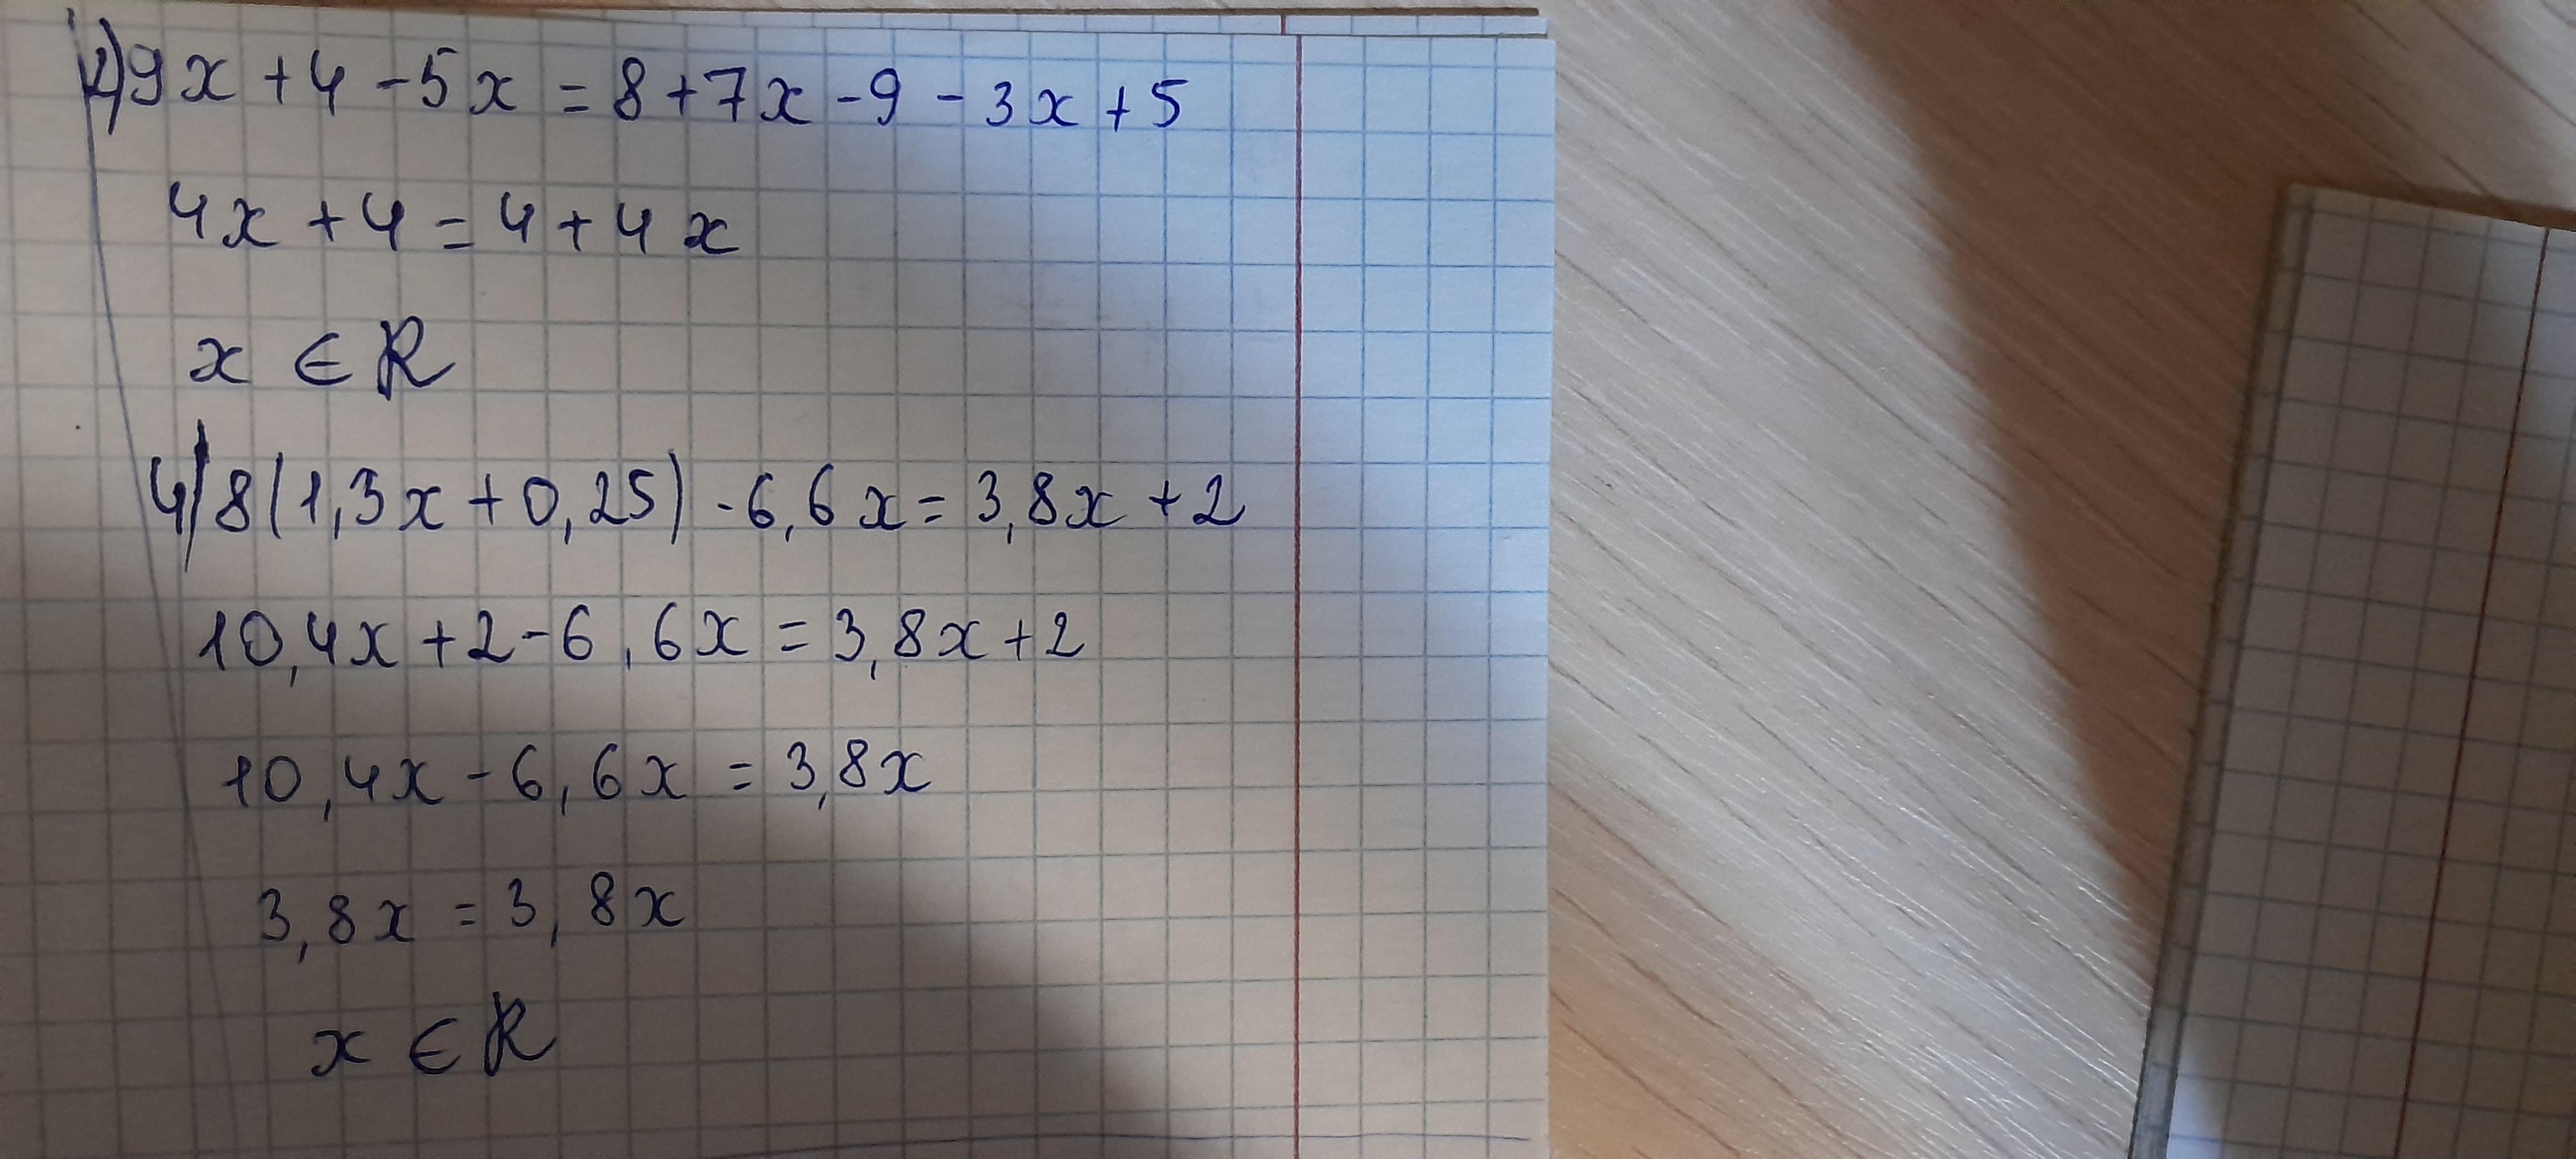 2) 9x + 4 - 5x = 8 + 7x - 9 - 3x + 5
4x + 4 = 4 + 4x
x ∈ R
4) 8(1,3x + 0,25) - 6,6x = 3,8x + 2
10,4x + 2 - 6,6x = 3,8x + 2
10,4x - 6,6x = 3,8x
3,8x = 3,8x
x ∈ R